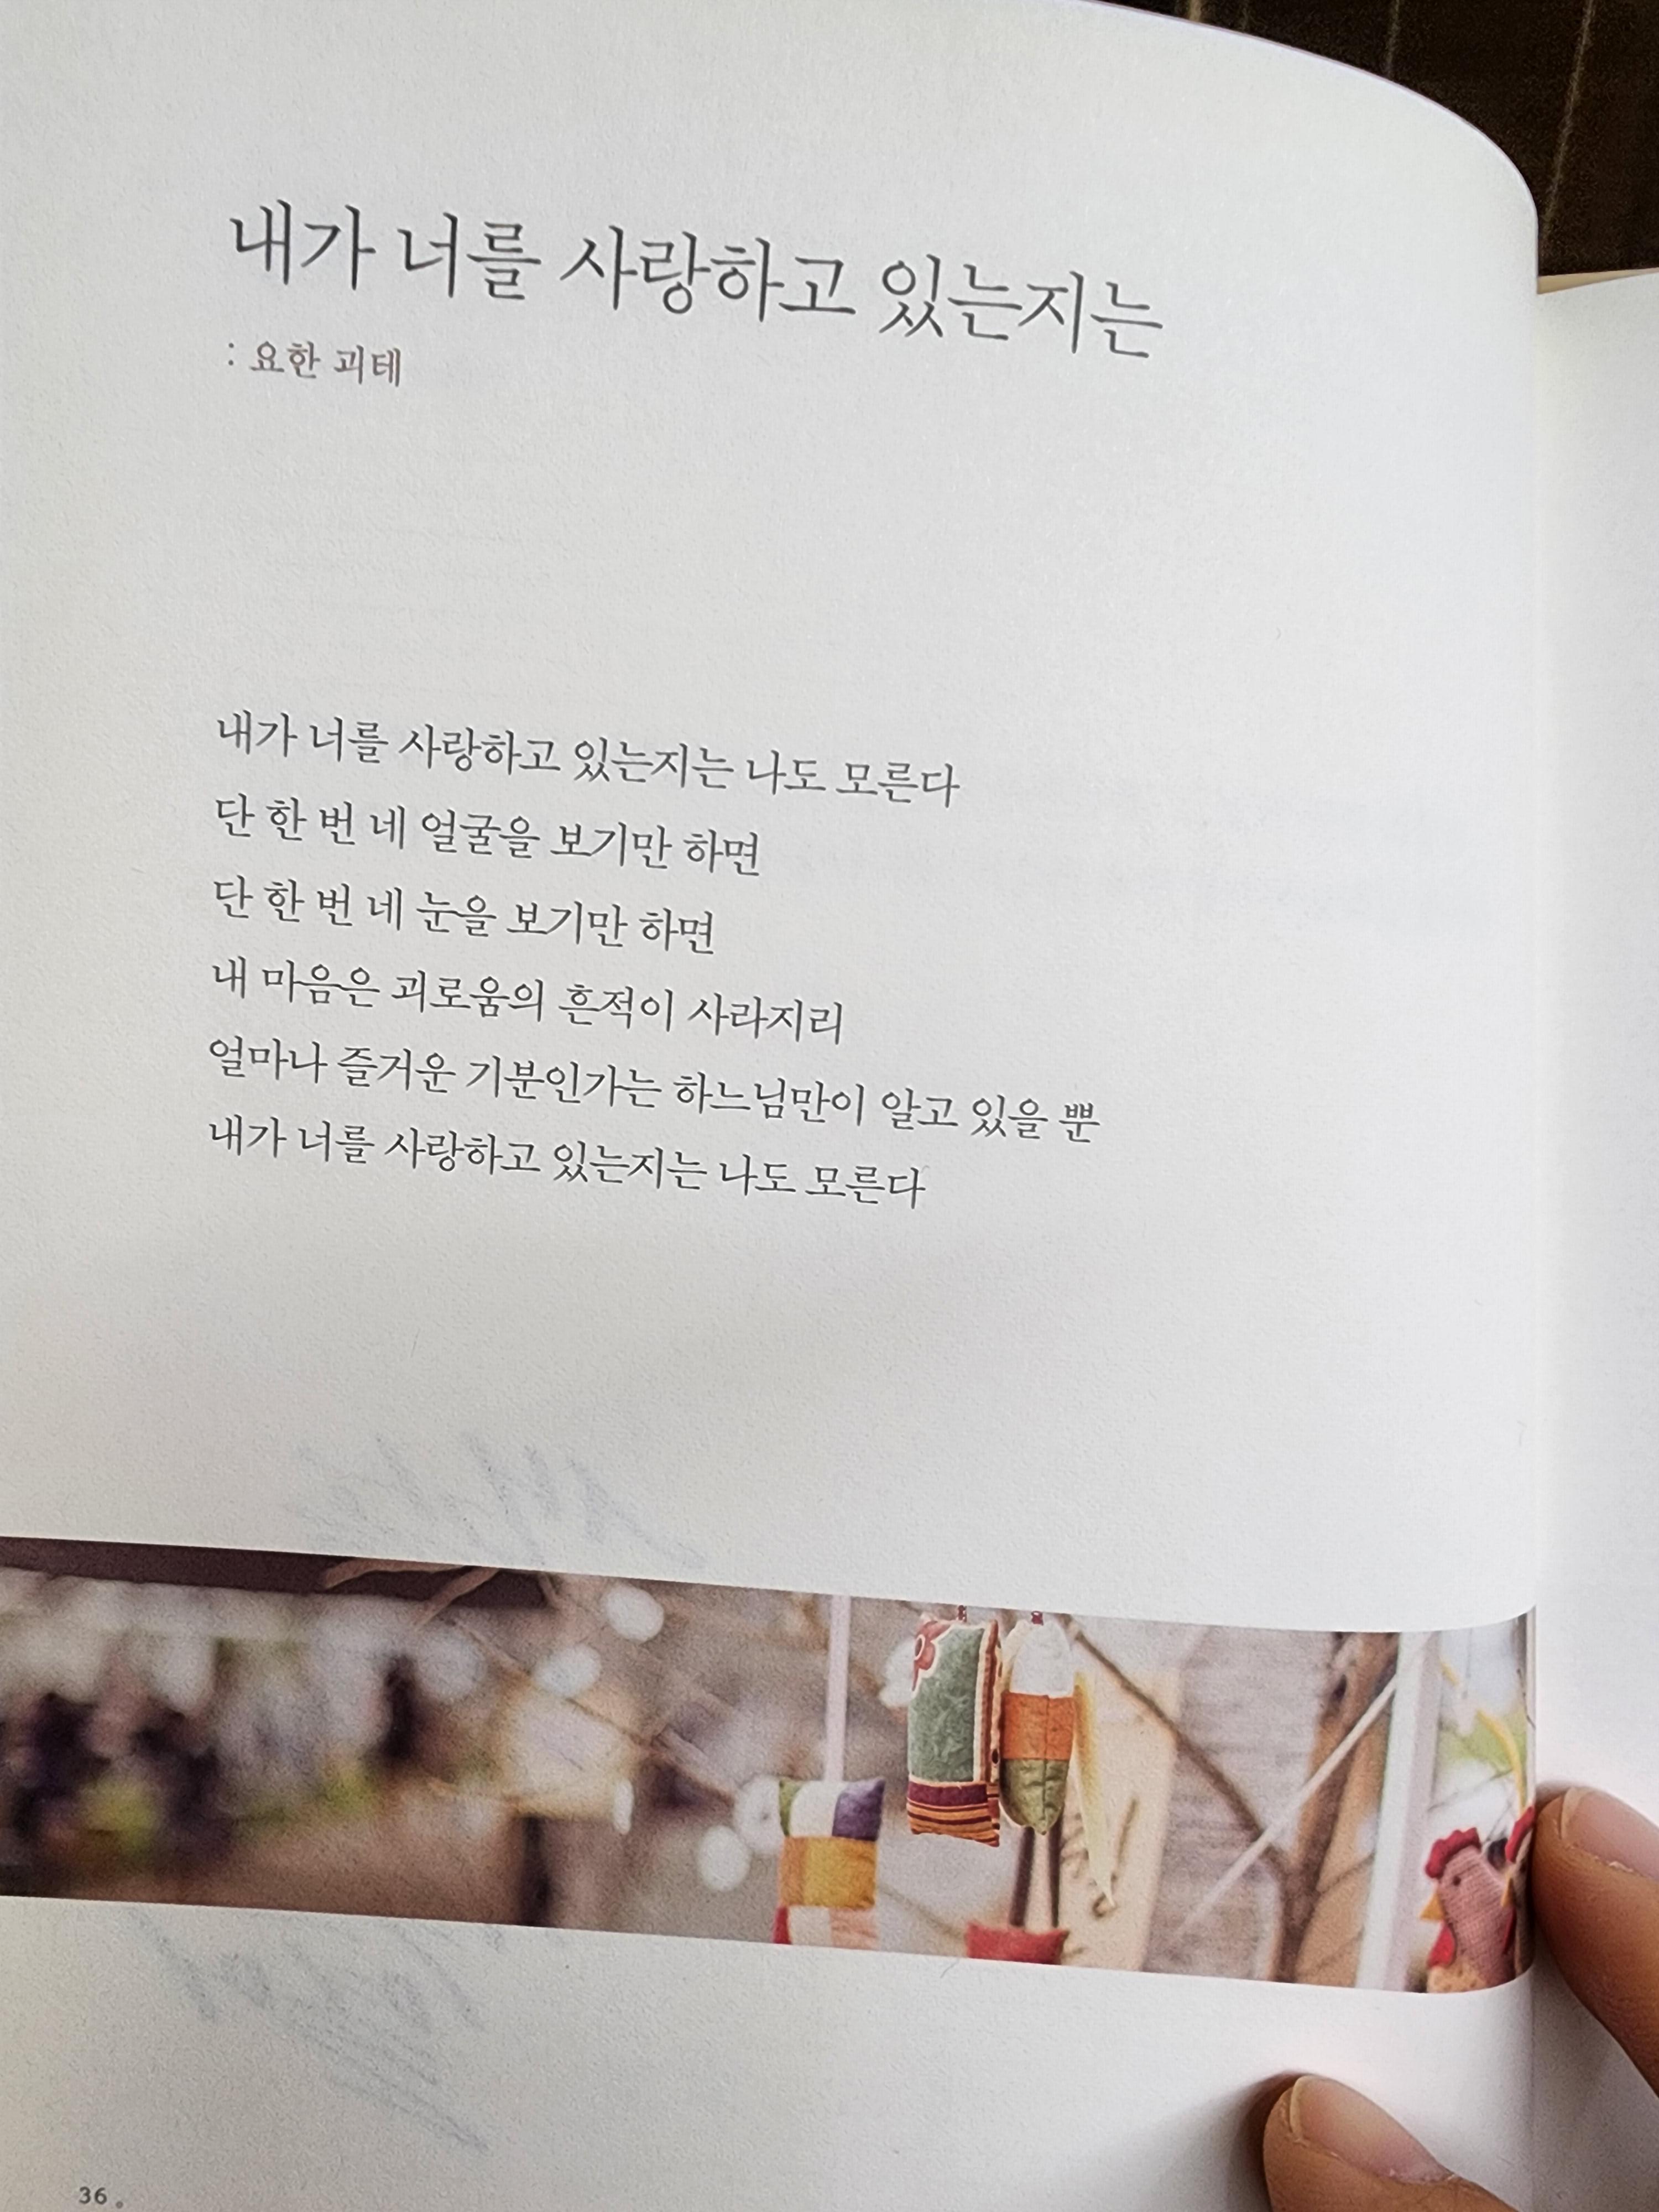 내가 너를 사랑하고 있는지는
: 요한 괴테
내가 너를 사랑하고 있는지는 나도 모른다
단 한 번 네 얼굴을 보기만 하면
단 한 번 네 눈을 보기만 하면
내 마음은 괴로움의 흔적이 사라지리
얼마나 즐거운 기분인가는 하느님만이 알고 있을 뿐
내가 너를 사랑하고 있는지는 나도 모른다
36